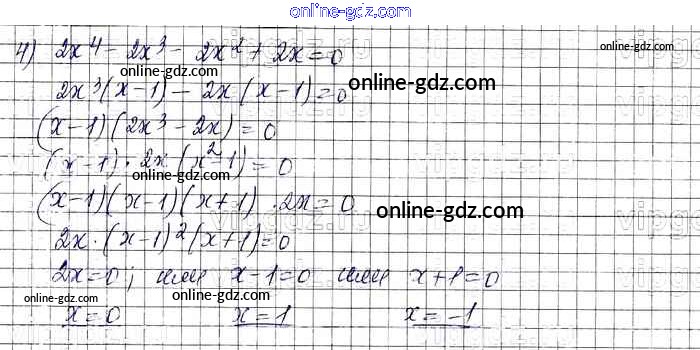 online-gdz.com
4) 2x⁴ - 2x³ - 2x² + 2x = 0
online-gdz.com
online-gdz.com
2x³(x-1) - 2x(x-1) = 0
online-gdz.com
(x-1)(2x³ - 2x) = 0
(x-1) · 2x(x²-1) = 0
online-gdz.com
(x-1)(x-1)(x+1) · 2x = 0
online-gdz.com
2x · (x-1)²(x+1) = 0
2x = 0; или x-1 = 0 или x+1 = 0
online-gdz.com
online-gdz.com
online-gdz.com
x = 0 x = 1 x = -1